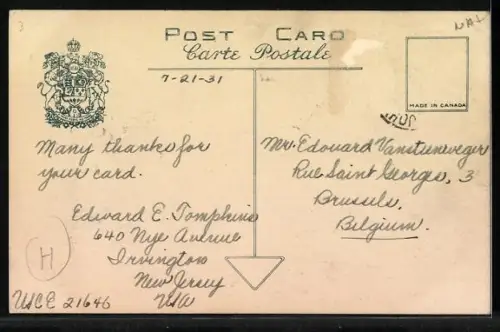 3
POST CARD
Carte Postale
NAT
7-21-31
MADE IN CANADA
Many thanks for
your card.
Edward E. Tompkins
640 Nye Avenue
Irvington
New Jersey
USA
H
USCE 21646
Mr. Edouard Vansteenweger
Rue Saint Georges, 3
Brussels,
Belgium.